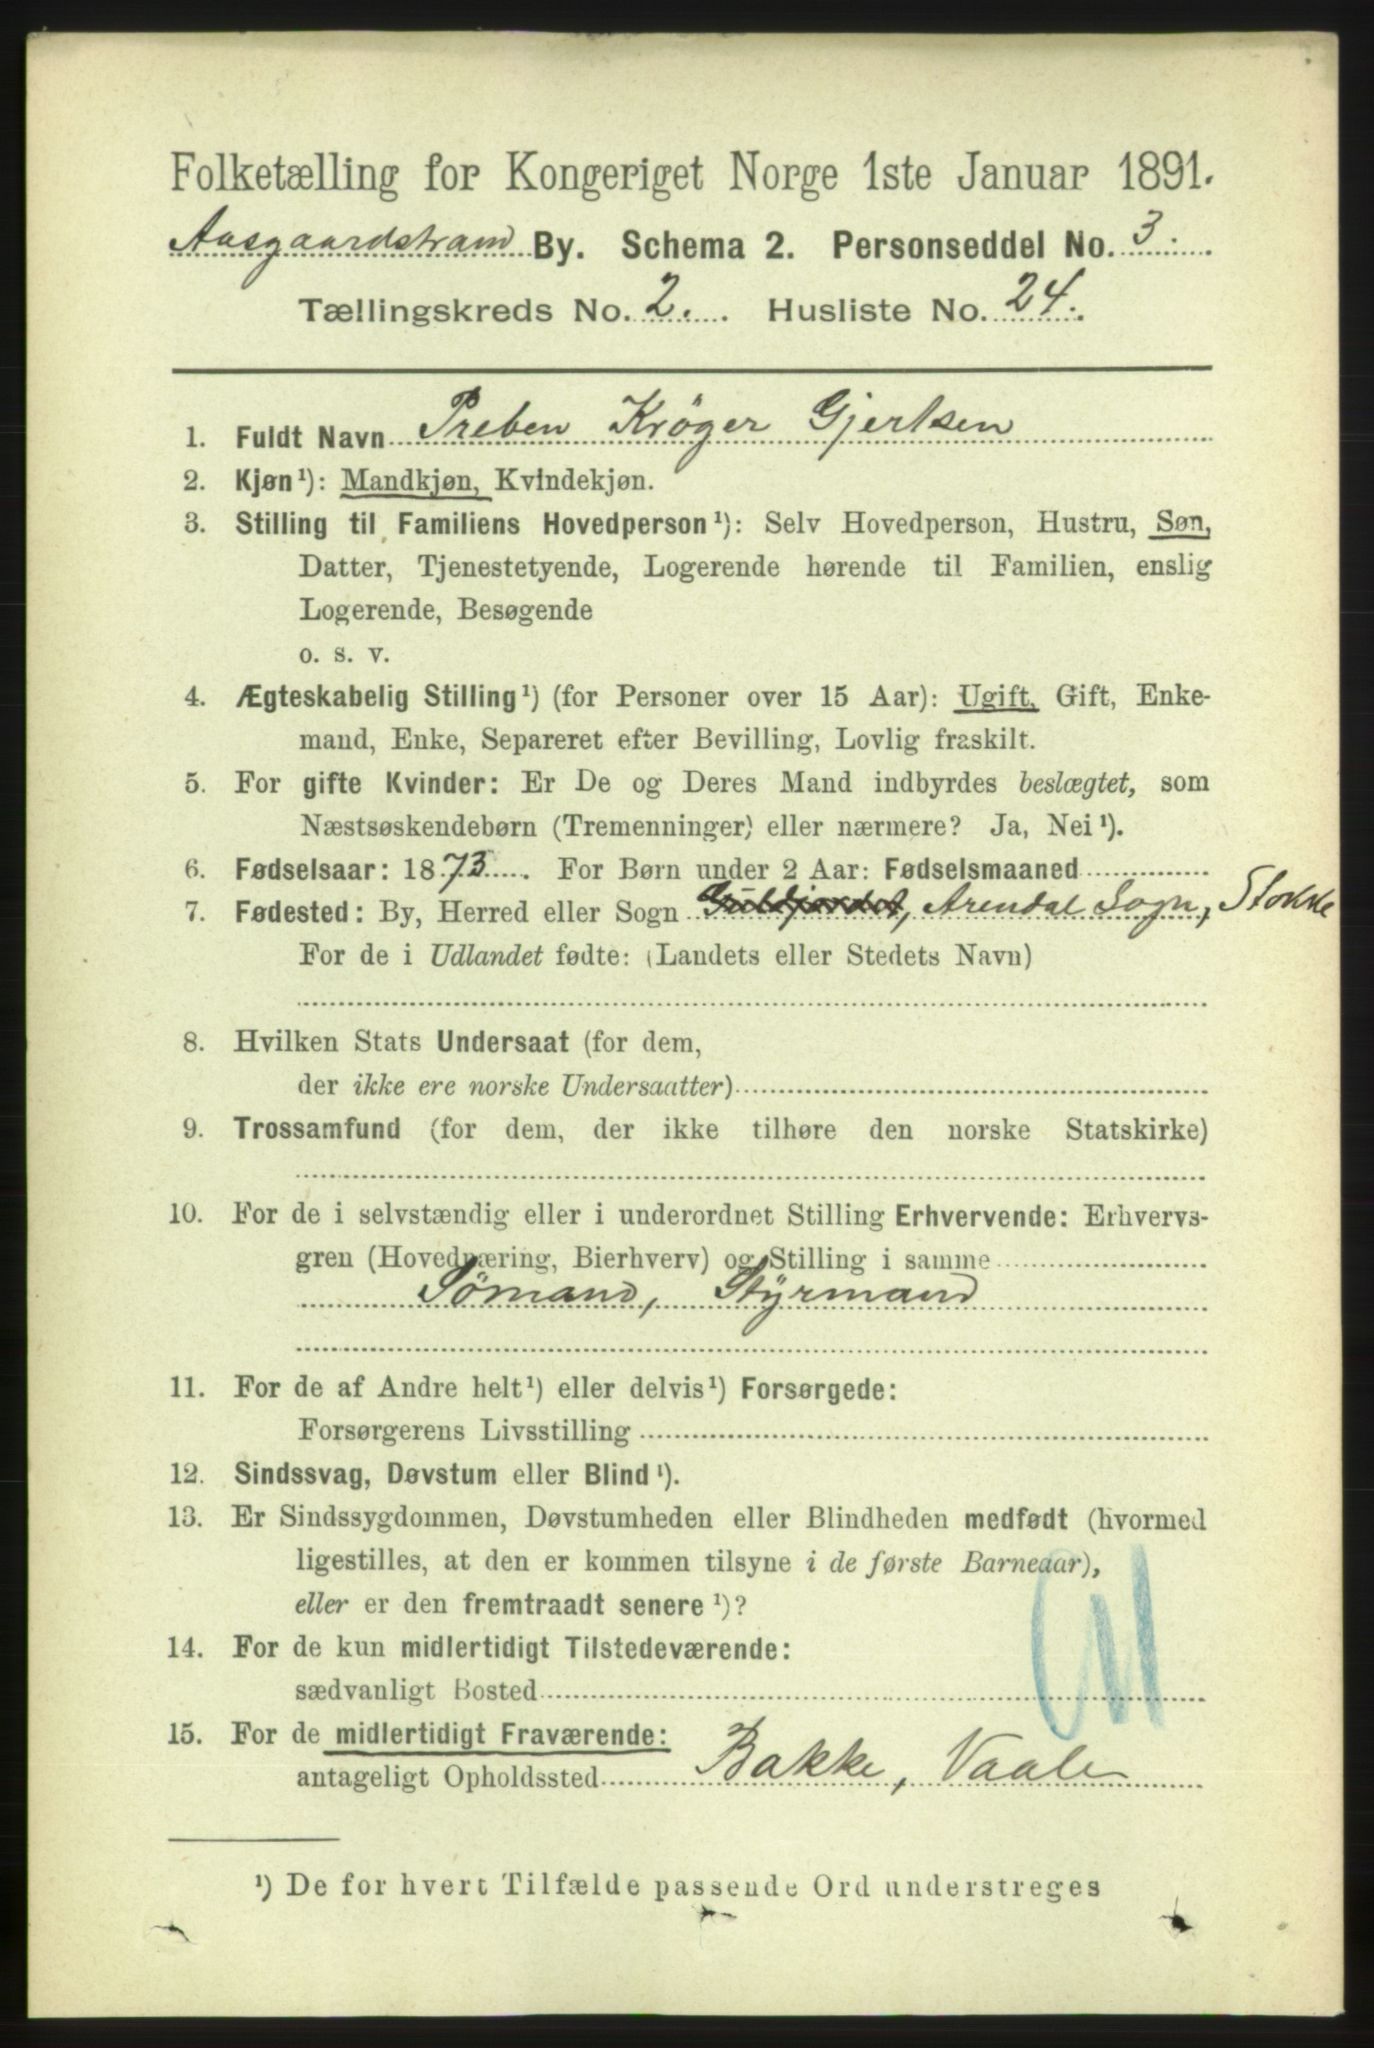 Folketælling for Kongeriget Norge 1ste Januar 1891.
Aasgaardstrand By. Schema 2. Personseddel No. 3.
Tællingskreds No. 2. Husliste No. 24.
1. Fuldt Navn Preben Krøger Gjertsen
2. Kjøn¹): Mandkjøn, Kvindekjøn.
3. Stilling til Familiens Hovedperson¹): Selv Hovedperson, Hustru, Søn,
Datter, Tjenestetyende, Logerende hørende til Familien, enslig
Logerende, Besøgende
o. s. v.
4. Ægteskabelig Stilling¹) (for Personer over 15 Aar): Ugift, Gift, Enke-
mand, Enke, Separeret efter Bevilling, Lovlig fraskilt.
5. For gifte Kvinder: Er De og Deres Mand indbyrdes beslægtet, som
Næstsøskendebørn (Tremenninger) eller nærmere? Ja, Nei¹).
6. Fødselsaar: 1873. For Børn under 2 Aar: Fødselsmaaned
7. Fødested: By, Herred eller Sogn Arendal Sogn, Stokke
For de i Udlandet fødte: (Landets eller Stedets Navn)
8. Hvilken Stats Undersaat (for dem,
der ikke ere norske Undersaatter)
9. Trossamfund (for dem, der ikke tilhøre den norske Statskirke)
10. For de i selvstændig eller i underordnet Stilling Erhvervende: Erhvervs-
gren (Hovednæring, Bierhverv) og Stilling i samme
Sömand, Styrmand
11. For de af Andre helt¹) eller delvis¹) Forsørgede:
Forsørgerens Livsstilling
12. Sindssvag, Døvstum eller Blind¹).
13. Er Sindssygdommen, Døvstumheden eller Blindheden medfødt (hvormed
ligestilles, at den er kommen tilsyne i de første Barneaar),
eller er den fremtraadt senere¹)?
14. For de kun midlertidigt Tilstedeværende:
sædvanligt Bosted
15. For de midlertidigt Fraværende:
antageligt Opholdssted Bakke, Vaale
¹) De for hvert Tilfælde passende Ord understreges